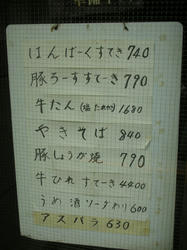 はんばーぐすてき 740
豚ろーすすてーき 790
牛たん (塩 たれ) 1680
やきそば 840
豚しょうが焼 790
牛ひれすてーき 4200
うめ酒ソーダわり 600
アスパラ 630